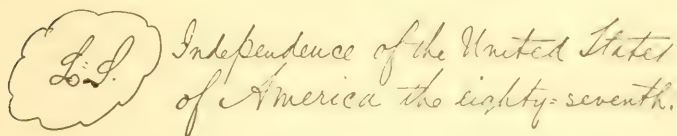 L.S. Independence of the United States
of America the eighty=seventh.